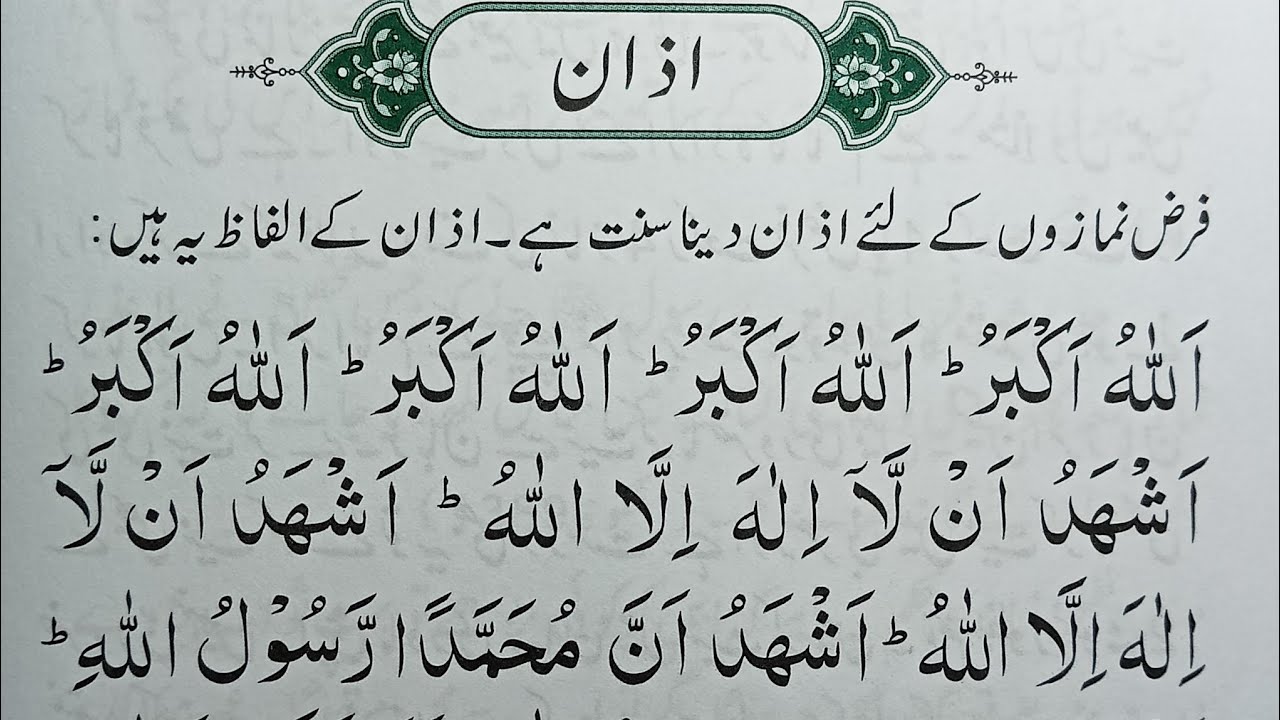 اذان
فرض نمازوں کے لئے اذان دینا سنت ہے۔ اذان کے الفاظ یہ ہیں:
اَللّٰهُ اَكْبَرُ ؕ اَللّٰهُ اَكْبَرُ ؕ اَللّٰهُ اَكْبَرُ ؕ اَللّٰهُ اَكْبَرُ ؕ
اَشْهَدُ اَنْ لَّاۤ اِلٰهَ اِلَّا اللّٰهُ ؕ اَشْهَدُ اَنْ لَّاۤ
اِلٰهَ اِلَّا اللّٰهُ ؕ اَشْهَدُ اَنَّ مُحَمَّدًا رَّسُوْلُ اللّٰهِ ؕ